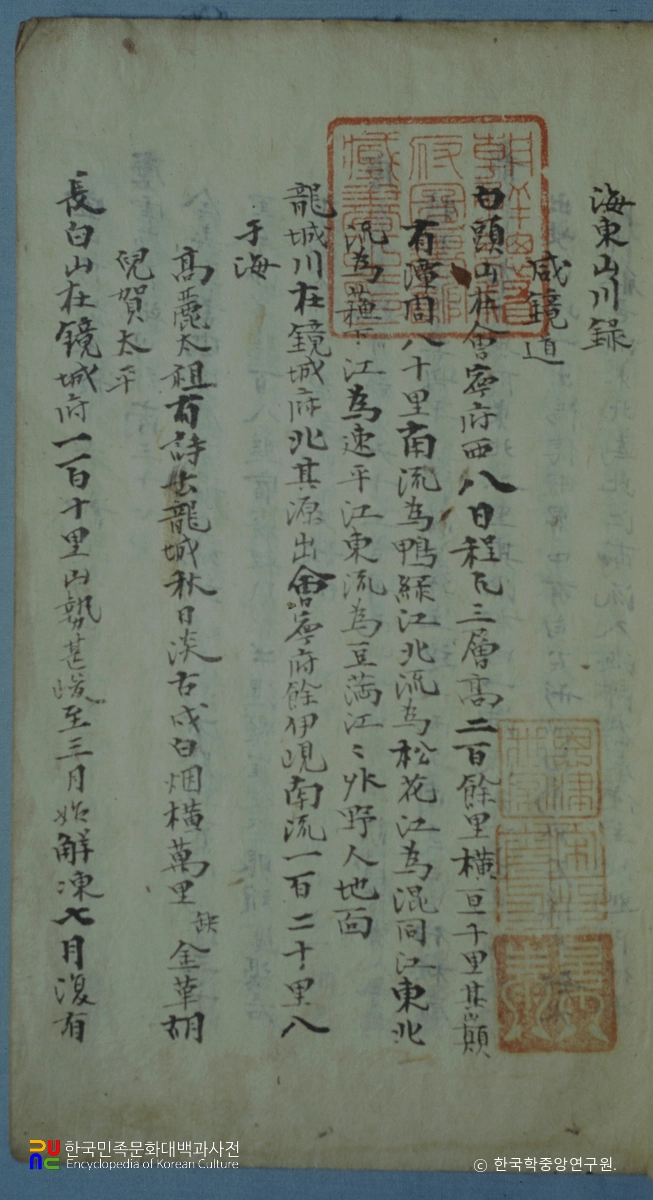 海東山川錄
咸鏡道
白頭山在會寧府西八日程凡三層高二百餘里橫亘千里其巔
有潭周八十里南流為鴨綠江北流為松花江為混同江東北
流為蘓下江為速平江東流為豆滿江〻外野人地面
龍城川在鏡城府北其源出會寧府餘伊峴南流一百二十里入
于海
高麗太祖有詩云龍城秋日淡古戍白烟橫萬里缺金革胡
兒賀太平
長白山在鏡城府一百十里山勢甚峻至三月始解凍七月復有
한국민족문화대백과사전
Encyclopedia of Korean Culture
ⓒ 한국학중앙연구원.